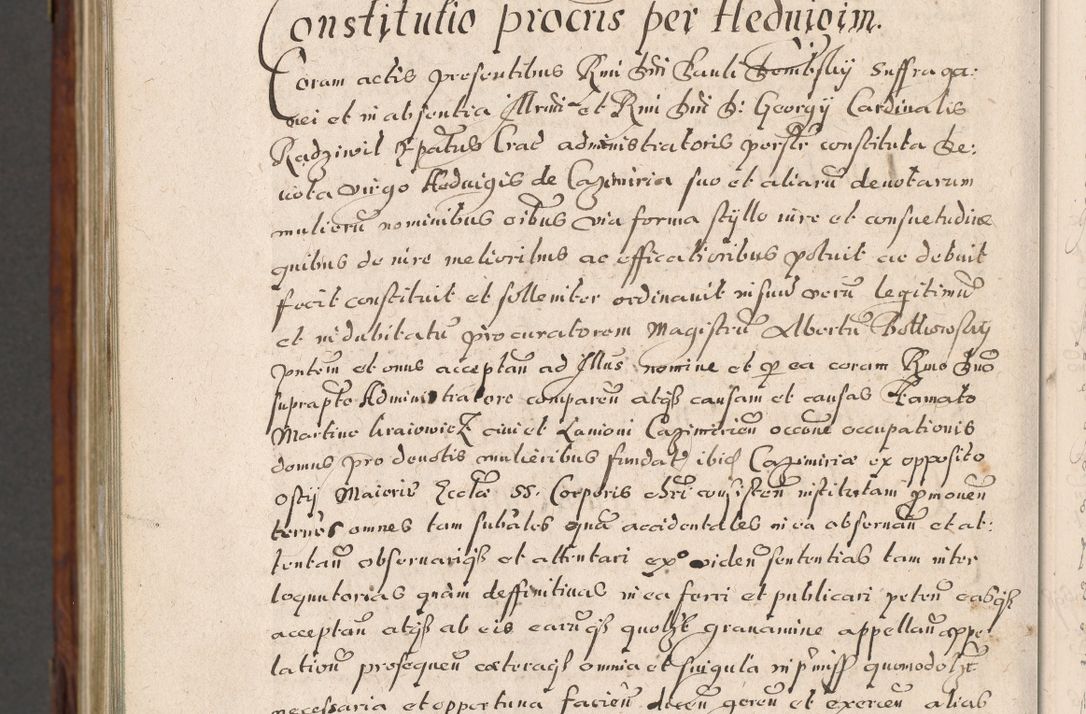 Constitutio procris per Heduigim.
Coram actis presentibus Rmi Dni Pauli Dembskij Suffraga:
nei et in absentia Illmi et Rmi Dni D: Georgij Cardinalis
Radziwil Epatus Crac administratoris perstr constituta De:
uota virgo Heduigis de Cazimiria suo et aliaru deuotarum
mulieru nominibus oibus via forma styllo iure et consuetudine
quibus de iure melioribus ac efficatioribus potuit ac debuit
fecit constituit et solleniter ordinauit in suu veru legitimu
et indubitatu procuratorem Magistru Albertu
pntem et onus acceptan ad Illius nomine et p ea coram Rmo Dno
suprapto Administratore comparen atqs causam et causas Famato
Martino Kraiowicz ciui et Lanioni Cazimirien occone occupationis
domus pro deuotis mulieribus fundat ibid Cazimiriæ ex opposito
ostij Maioris Ecclæ SS. Corporis Chri consisten institutam pmouen
ternos omnes tam substales qua accidentales in ea obseruan et at:
tentan obseruariqs et attentari exo viden sententias tam inter
loquutorias quàm deffinitiuas in ea ferri et publicari peten easqs
acceptan atqs ab eis earuqs quolzt grauamine appellan appe
lationu prosequen cæteraqs omnia et singula in pmiss quomodolzt
necessaria et opportuna facien dicen geren et exercen alias